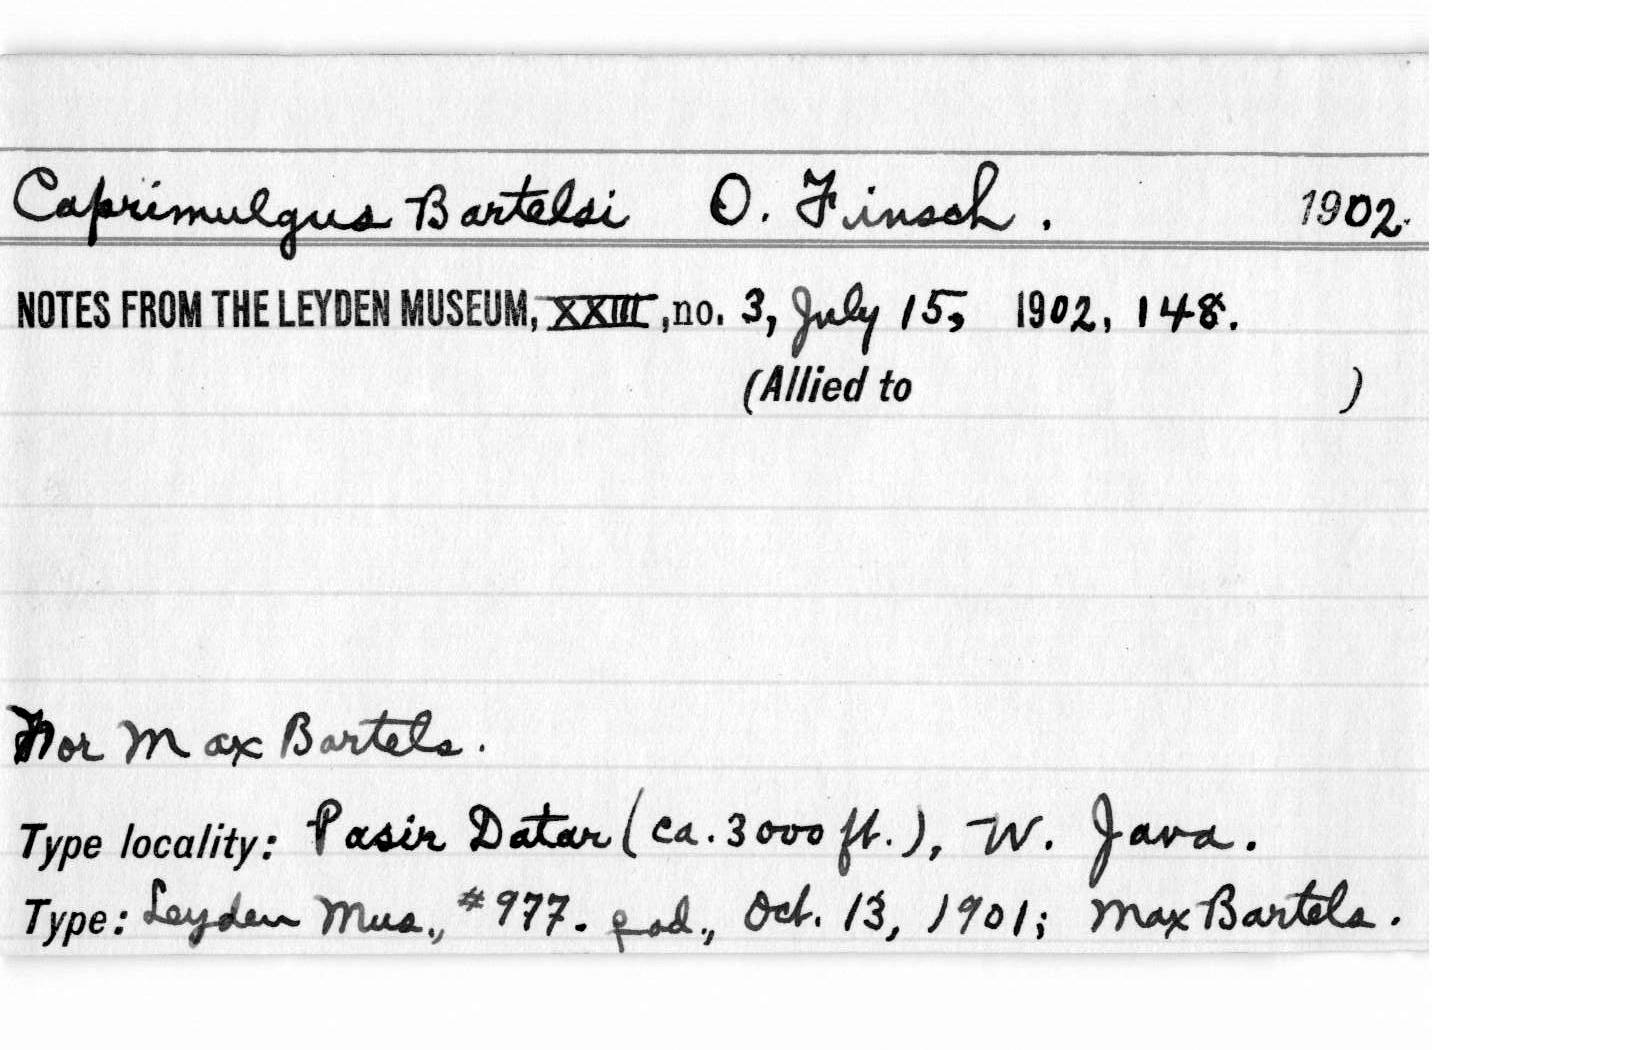 Caprimulgus Bartelsi O. Finsch. 1902.
NOTES FROM THE LEYDEN MUSEUM, XXIII, no. 3, July 15, 1902, 148.
(Allied to )
For Max Bartels.
Type locality: Pasir Datar (ca. 3000 ft.), W. Java.
Type: Leyden Mus., #977. ad., Oct. 13, 1901; Max Bartels.